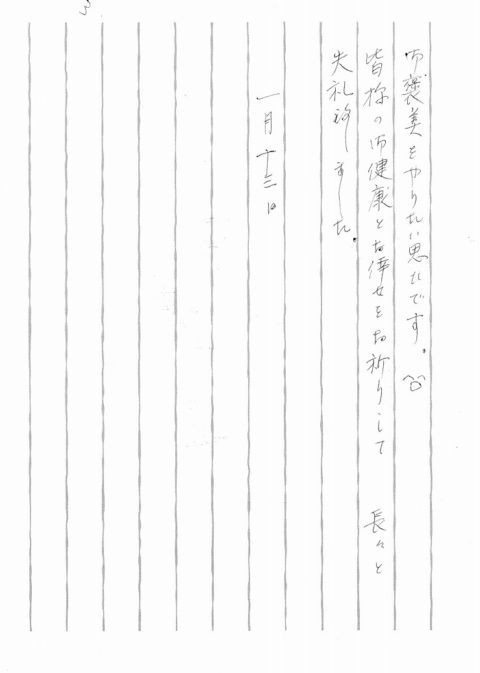 御褒美をやりたい思いです。
皆様の御健康とお倖せをお祈りして 長々と
失礼致しました。
一月十三日
3